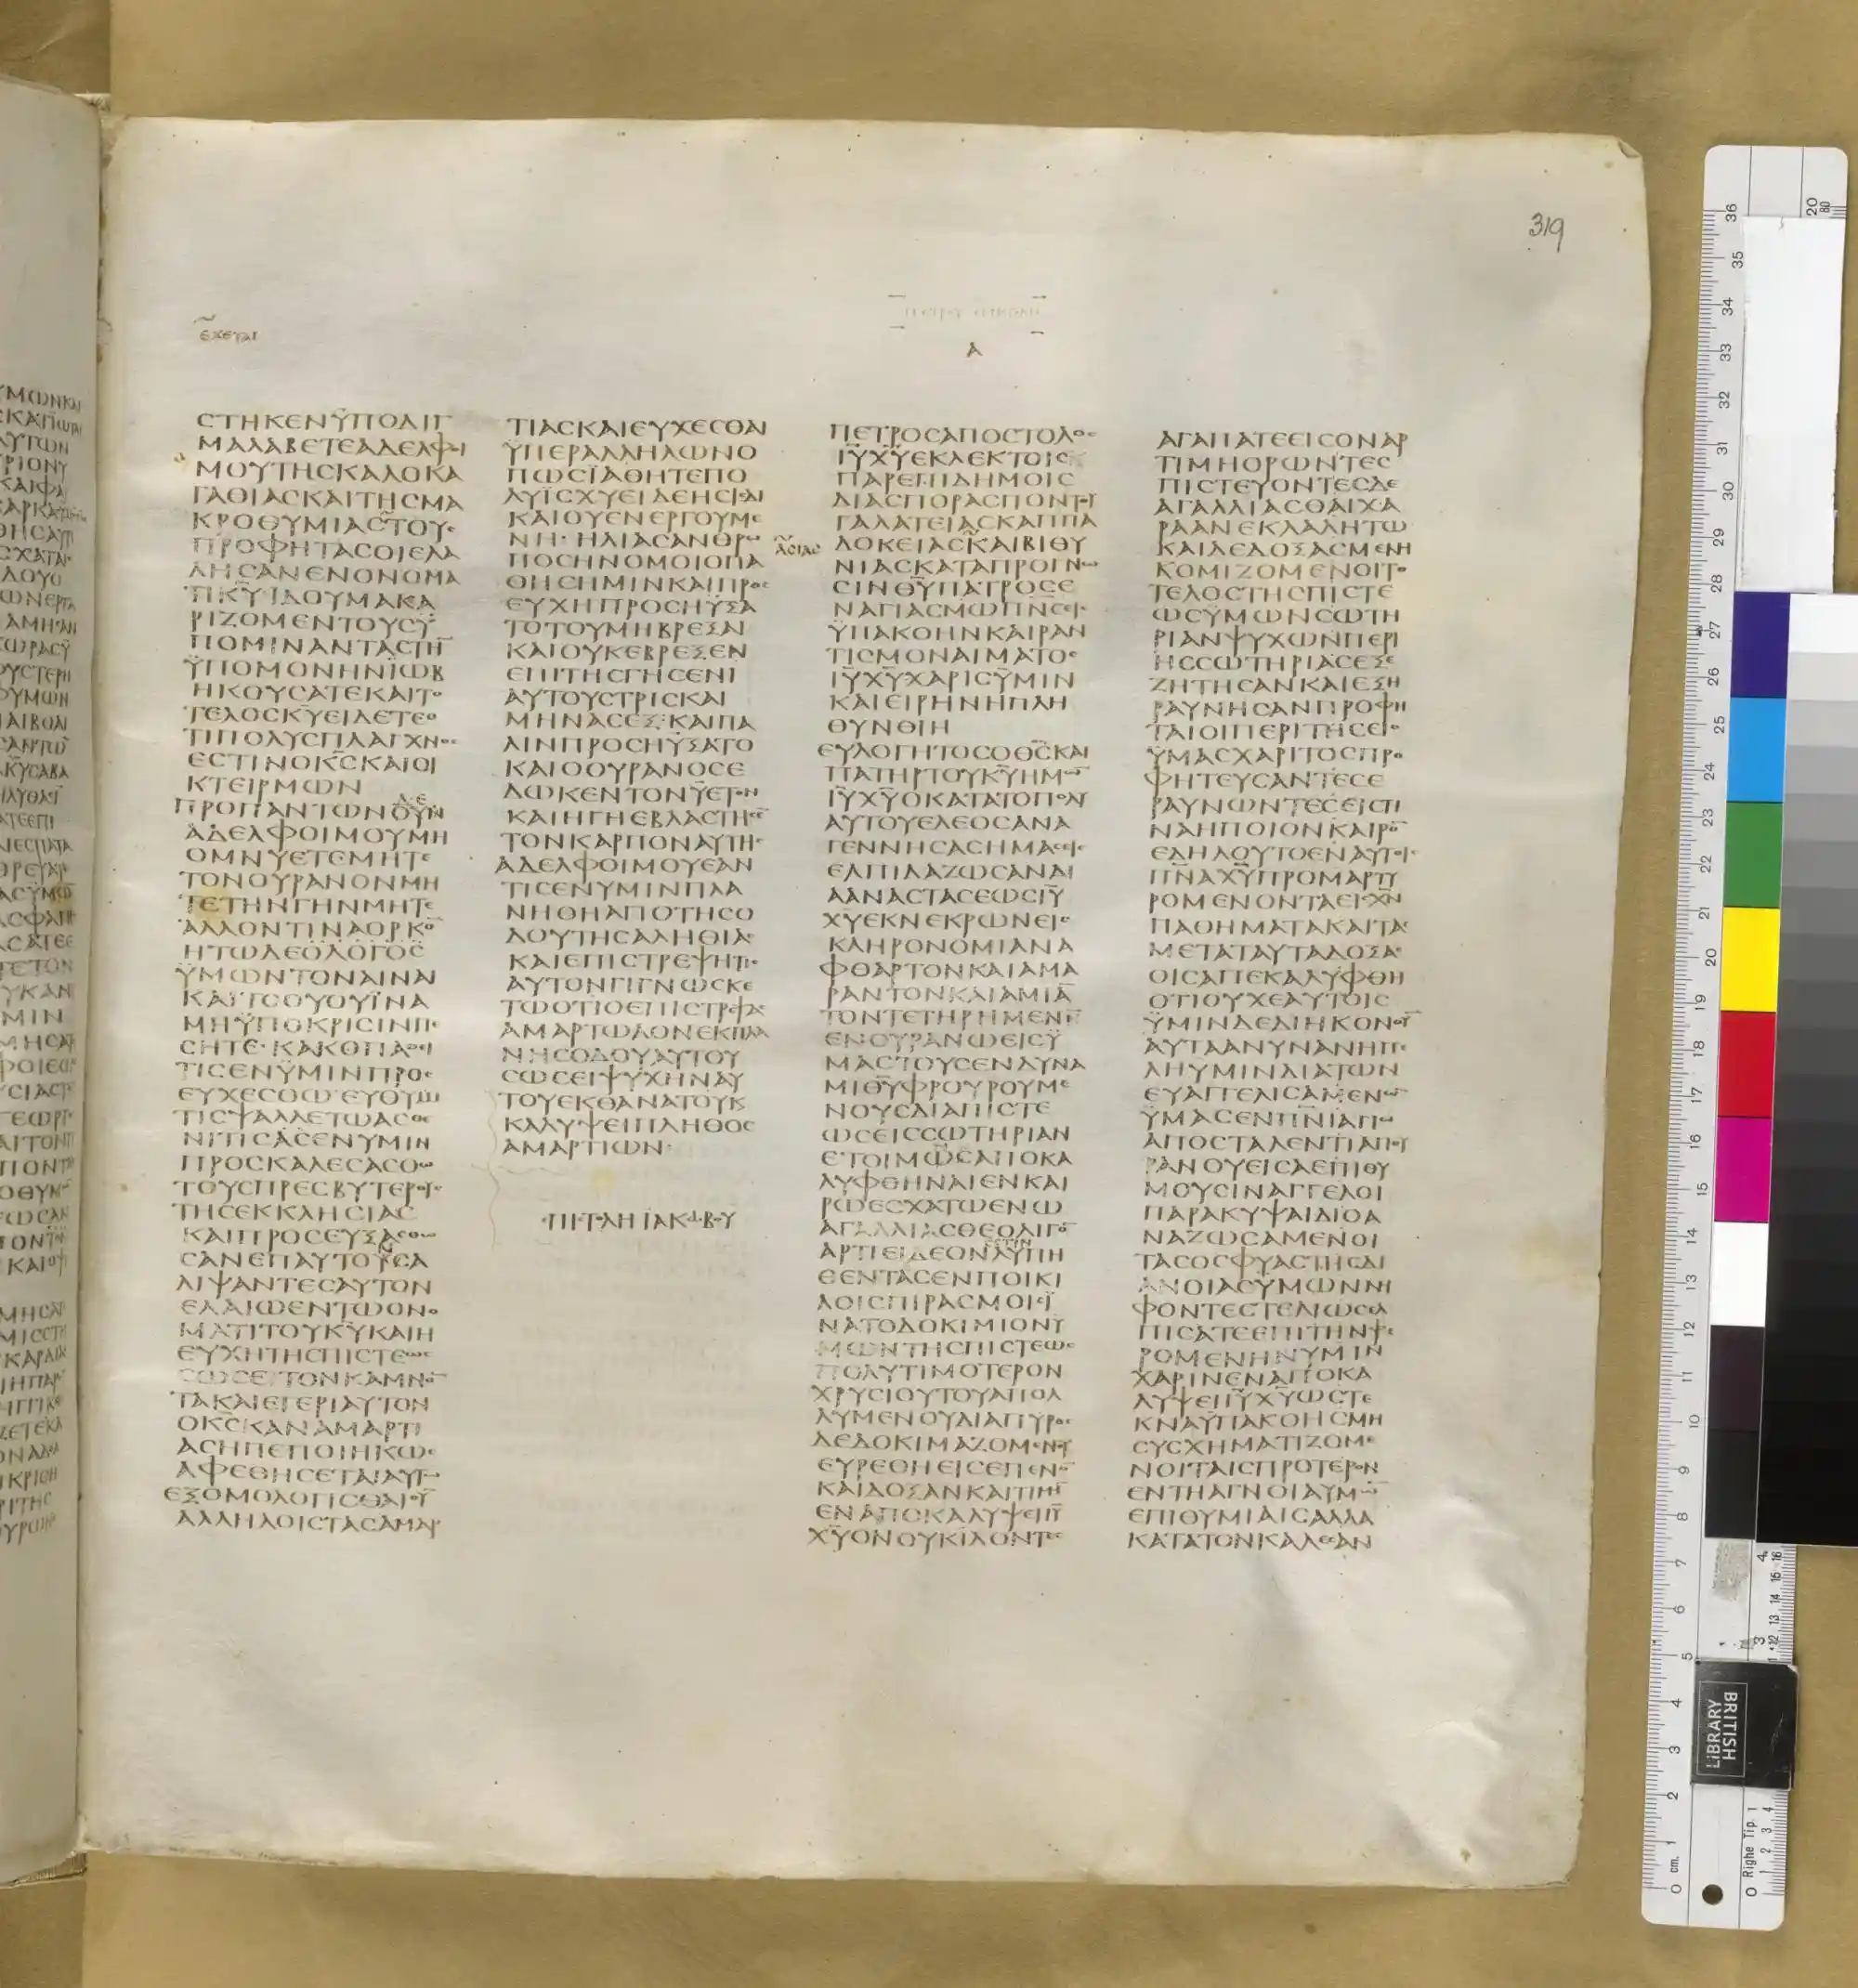 319
ΕΧΕΤΑΙ
ΠΕΤΡΟΥ ΕΠΙΣΤΟΛΗ
Α
ϹΤΗΚΕΝΫΠΟΔΙΓ
ΜΑΛΑΒΕΤΕΑΔΕΛΦΟΙ
ΜΟΥΤΗϹΚΑΛΟΚΑ
ΓΑΘΙΑϹΚΑΙΤΗϹΜΑ
ΚΡΟΘΥΜΙΑϹΤΟΥϹ
ΠΡΟΦΗΤΑϹΟΙΕΛΑ
ΛΗϹΑΝΕΝΟΝΟΜΑ
ΤΙΚ̅Υ̅ΙΔΟΥΜΑΚΑ
ΡΙΖΟΜΕΝΤΟΥϹΫ
ΠΟΜΙΝΑΝΤΑϹΤΗ̅
ΫΠΟΜΟΝΗΝΪΩΒ
ΗΚΟΥϹΑΤΕΚΑΙΤΟ
ΤΕΛΟϹΚ̅Υ̅ΕΙΔΕΤΕΟ
ΤΙΠΟΛΥϹΠΛΑΓΧΝΟϹ
ΕϹΤΙΝΟΚ̅Ϲ̅ΚΑΙΟΙ
ΚΤΕΙΡΜΩΝ
ΠΡΟΠΑΝΤΩΝΟΥΝ
ΑΔΕΛΦΟΙΜΟΥΜΗ
ΟΜΝΥΕΤΕΜΗΤΕ
ΤΟΝΟΥΡΑΝΟΝΜΗ
ΤΕΤΗΝΓΗΝΜΗΤΕ
ΑΛΛΟΝΤΙΝΑΟΡΚΟ̅
ΗΤΩΔΕΟΛΟΓΟϹ
ΫΜΩΝΤΟΝΑΙΝΑΙ
ΚΑΙΤΟΟΥΟΥΪΝΑ
ΜΗΫΠΟΚΡΙϹΙΝΠΕ
ϹΗΤΕ·ΚΑΚΟΠΑΘΕΙ
ΤΙϹΕΝΫΜΙΝΠΡΟϹ
ΕΥΧΕϹΘΩ·ΕΥΘΥΜΙ
ΤΙϹΨΑΛΛΕΤΩΑϹΘΕ
ΝΙΤΙϹΑϹΕΝΥΜΙΝ
ΠΡΟϹΚΑΛΕϹΑϹΘΩ
ΤΟΥϹΠΡΕϹΒΥΤΕΡΟΥϹ
ΤΗϹΕΚΚΛΗϹΙΑϹ
ΚΑΙΠΡΟϹΕΥΞΑϹΘΩ
ϹΑΝΕΠΑΥΤΟΥϹΑ
ΛΙΨΑΝΤΕϹΑΥΤΟΝ
ΕΛΑΙΩΕΝΤΩΟΝΟ
ΜΑΤΙΤΟΥΚ̅Υ̅ΚΑΙΗ
ΕΥΧΗΤΗϹΠΙϹΤΕΩϹ
ϹΩϹΕΙΤΟΝΚΑΜΝΟ̅
ΤΑΚΑΙΕΓΕΡΙΑΥΤΟΝ
ΟΚ̅Ϲ̅ΚΑΝΑΜΑΡΤΙ
ΑϹΗΠΕΠΟΙΗΚΩϹ
ΑΦΕΘΗϹΕΤΑΙΑΥΤΩ
ΕΞΟΜΟΛΟΓΙϹΘΑΙΟΥ̅
ΑΛΛΗΛΟΙϹΤΑϹΑΜΑΡ
ΤΙΑϹΚΑΙΕΥΧΕϹΘΑΙ
ΫΠΕΡΑΛΛΗΛΩΝΟ
ΠΩϹΪΑΘΗΤΕΠΟ
ΛΥΪϹΧΥΕΙΔΕΗϹΙϹΔΙ
ΚΑΙΟΥΕΝΕΡΓΟΥΜΕ
ΝΗ·ΗΛΙΑϹΑΝΘΡΩ
ΠΟϹΗΝΟΜΟΙΟΠΑ
ΘΗϹΗΜΙΝΚΑΙΠΡΟϹ
ΕΥΧΗΠΡΟϹΗΫΞΑ
ΤΟΤΟΥΜΗΒΡΕΞΑΙ
ΚΑΙΟΥΚΕΒΡΕΞΕΝ
ΕΠΙΤΗϹΓΗϹΕΝΙ
ΑΥΤΟΥϹΤΡΙϹΚΑΙ
ΜΗΝΑϹΕΞ·ΚΑΙΠΑ
ΛΙΝΠΡΟϹΗΫΞΑΤΟ
ΚΑΙΟΟΥΡΑΝΟϹΕ
ΔΩΚΕΝΤΟΝΫΕΤΟΝ
ΚΑΙΗΓΗΕΒΛΑϹΤΗϹΕ̅
ΤΟΝΚΑΡΠΟΝΑΥΤΗϹ
ΑΔΕΛΦΟΙΜΟΥΕΑΝ
ΤΙϹΕΝΥΜΙΝΠΛΑ
ΝΗΘΗΑΠΟΤΗϹΟ
ΔΟΥΤΗϹΑΛΗΘΙΑϹ
ΚΑΙΕΠΙϹΤΡΕΨΗΤΙϹ
ΑΥΤΟΝΓΙΓΝΩϹΚΕ
ΤΩΟΤΙΟΕΠΙϹΤΡΕΨΑϹ
ΑΜΑΡΤΩΛΟΝΕΚΠΛΑ
ΝΗϹΟΔΟΥΑΥΤΟΥ
ϹΩϹΕΙΨΥΧΗΝΑΥ
ΤΟΥΕΚΘΑΝΑΤΟΥΚ
ΚΑΛΥΨΕΙΠΛΗΘΟϹ
ΑΜΑΡΤΙΩΝ·
ΑϹΙΑϹ
ΠΕΤΡΟϹΑΠΟϹΤΟΛΟϹ
Ι̅Υ̅Χ̅Υ̅ΕΚΛΕΚΤΟΙϹ
ΠΑΡΕΠΙΔΗΜΟΙϹ
ΔΙΑϹΠΟΡΑϹΠΟΝΤΟΥ
ΓΑΛΑΤΕΙΑϹΚΑΠΠΑ
ΔΟΚΕΙΑϹΚΑΙΒΙΘΥ
ΝΙΑϹΚΑΤΑΠΡΟΓΝΩ
ϹΙΝΘ̅Υ̅ΠΑΤΡΟϹΕ
ΝΑΓΙΑϹΜΩΠ̅Ν̅Ϲ̅ΕΙϹ
ΫΠΑΚΟΗΝΚΑΙΡΑΝ
ΤΙϹΜΟΝΑΙΜΑΤΟϹ
Ι̅Υ̅Χ̅Υ̅ΧΑΡΙϹΫΜΙΝ
ΚΑΙΕΙΡΗΝΗΠΛΗ
ΘΥΝΘΙΗ
ΕΥΛΟΓΗΤΟϹΟΘ̅Ϲ̅ΚΑΙ
ΠΑΤΗΡΤΟΥΚ̅Υ̅ΗΜΩ̅
Ι̅Υ̅Χ̅Υ̅ΟΚΑΤΑΤΟΠΟΛΥ
ΑΥΤΟΥΕΛΕΟϹΑΝΑ
ΓΕΝΝΗϹΑϹΗΜΑϹΕΙϹ
ΕΛΠΙΔΑΖΩϹΑΝΔΙ
ΑΑΝΑϹΤΑϹΕΩϹΙ̅Υ̅
Χ̅Υ̅ΕΚΝΕΚΡΩΝΕΙϹ
ΚΛΗΡΟΝΟΜΙΑΝΑ
ΦΘΑΡΤΟΝΚΑΙΑΜΑ
ΡΑΝΤΟΝΚΑΙΑΜΙΑ̅
ΤΟΝΤΕΤΗΡΗΜΕΝΗ̅
ΕΝΟΥΡΑΝΩΕΙϹΫ
ΜΑϹΤΟΥϹΕΝΔΥΝΑ
ΜΙΘ̅Υ̅ΦΡΟΥΡΟΥΜΕ
ΝΟΥϹΔΙΑΠΙϹΤΕ
ΩϹΕΙϹϹΩΤΗΡΙΑΝ
ΕΤΟΙΜΩϹΑΠΟΚΑ
ΛΥΦΘΗΝΑΙΕΝΚΑΙ
ΡΩΕϹΧΑΤΩΕΝΩ
ΑΓΑΛΛΙΑϹΘΕΟΛΙΓΟ̅
ΑΡΤΙΕΙΔΕΟΝΛΥΠΗ
ΘΕΝΤΑϹΕΝΠΟΙΚΙ
ΛΟΙϹΠΙΡΑϹΜΟΙϹΪ
ΝΑΤΟΔΟΚΙΜΙΟΝΥ
ΜΩΝΤΗϹΠΙϹΤΕΩϹ
ΠΟΛΥΤΙΜΟΤΕΡΟΝ
ΧΡΥϹΙΟΥΤΟΥΑΠΟΛ
ΛΥΜΕΝΟΥΔΙΑΠΥΡΟϹ
ΔΕΔΟΚΙΜΑΖΟΜΕΝΟΥ
ΕΥΡΕΘΗΕΙϹΕΠΕΝΟ̅
ΚΑΙΔΟΞΑΝΚΑΙΤΙΜΗ̅
ΕΝΑΠΟΚΑΛΥΨΕΙΙ̅Υ̅
Χ̅Υ̅ΟΝΟΥΚΙΔΟΝΤΕϹ
ΑΓΑΠΑΤΕΕΙϹΟΝΑΡ
ΤΙΜΗΟΡΩΝΤΕϹ
ΠΙϹΤΕΥΟΝΤΕϹΔΕ
ΑΓΑΛΛΙΑϹΘΑΙΧΑ
ΡΑΑΝΕΚΛΑΛΗΤΩ
ΚΑΙΔΕΔΟΞΑϹΜΕΝΗ
ΚΟΜΙΖΟΜΕΝΟΙΤΟ
ΤΕΛΟϹΤΗϹΠΙϹΤΕ
ΩϹΫΜΩΝϹΩΤΗ
ΡΙΑΝΨΥΧΩΝΠΕΡΙ
ΗϹϹΩΤΗΡΙΑϹΕΞΕ
ΖΗΤΗϹΑΝΚΑΙΕΞΗ
ΡΑΥΝΗϹΑΝΠΡΟΦΗ
ΤΑΙΟΙΠΕΡΙΤΗϹΕΙϹ
ΫΜΑϹΧΑΡΙΤΟϹΠΡΟ
ΦΗΤΕΥϹΑΝΤΕϹΕ
ΡΑΥΝΩΝΤΕϹΕΙϹΤΙ
ΝΑΗΠΟΙΟΝΚΑΙΡΟ̅
ΕΔΗΛΟΥΤΟΕΝΑΥΤΟΙϹ
Π̅Ν̅Α̅Χ̅Υ̅ΠΡΟΜΑΡΤΥ
ΡΟΜΕΝΟΝΤΑΕΙϹΧ̅Ν̅
ΠΑΘΗΜΑΤΑΚΑΙΤΑϹ
ΜΕΤΑΤΑΥΤΑΔΟΞΑϹ
ΟΙϹΑΠΕΚΑΛΥΦΘΗ
ΟΤΙΟΥΧΕΑΥΤΟΙϹ
ΫΜΙΝΔΕΔΙΗΚΟΝΟΥ̅
ΑΥΤΑΑΝΥΝΑΝΗΓΓΕ
ΛΗΥΜΙΝΔΙΑΤΩΝ
ΕΥΑΓΓΕΛΙϹΑΜΕΝΩ̅
ΫΜΑϹΕΝΠ̅Ν̅Ι̅ΑΓΙΩ
ΑΠΟϹΤΑΛΕΝΤΙΑΠΟΥ
ΡΑΝΟΥΕΙϹΑΕΠΙΘΥ
ΜΟΥϹΙΝΑΓΓΕΛΟΙ
ΠΑΡΑΚΥΨΑΙΔΙΟΑ
ΝΑΖΩϹΑΜΕΝΟΙ
ΤΑϹΟϹΦΥΑϹΤΗϹΔΙ
ΑΝΟΙΑϹΫΜΩΝΝΗ
ΦΟΝΤΕϹΤΕΛΙΩϹΕΛ
ΠΙϹΑΤΕΕΠΙΤΗΝΦΕ
ΡΟΜΕΝΗΝΥΜΙΝ
ΧΑΡΙΝΕΝΑΠΟΚΑ
ΛΥΨΕΙΙ̅Υ̅Χ̅Υ̅ΩϹΤΕ
ΚΝΑΫΠΑΚΟΗϹΜΗ
ϹΥϹΧΗΜΑΤΙΖΟΜΕ
ΝΟΙΤΑΙϹΠΡΟΤΕΡΟΝ
ΕΝΤΗΑΓΝΟΙΑΥΜΩ̅
ΕΠΙΘΥΜΙΑΙϹΑΛΛΑ
ΚΑΤΑΤΟΝΚΑΛΕϹΑΝ
BRITISH
LIBRARY